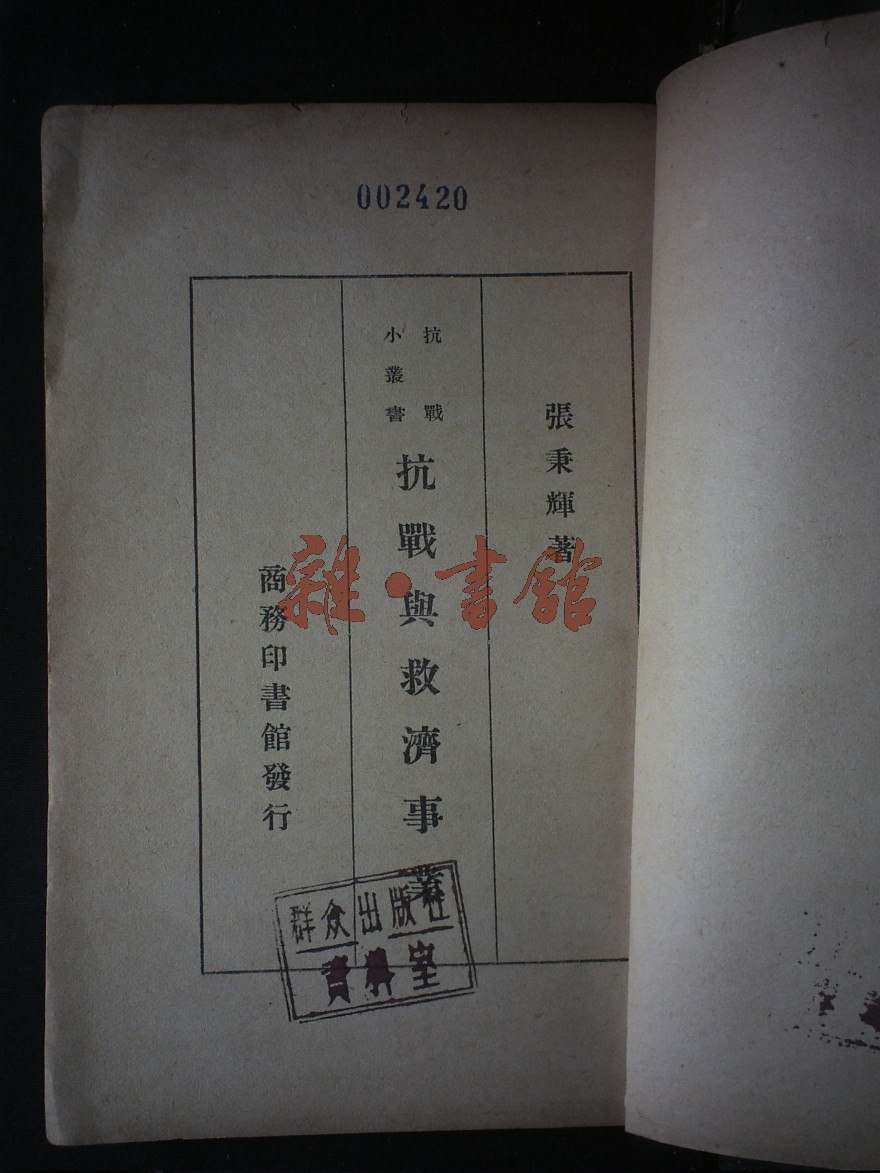 002420
張秉輝著
抗戰
小叢書
抗戰與救濟事業
商務印書館發行
雜·書館
群众出版社
資料室